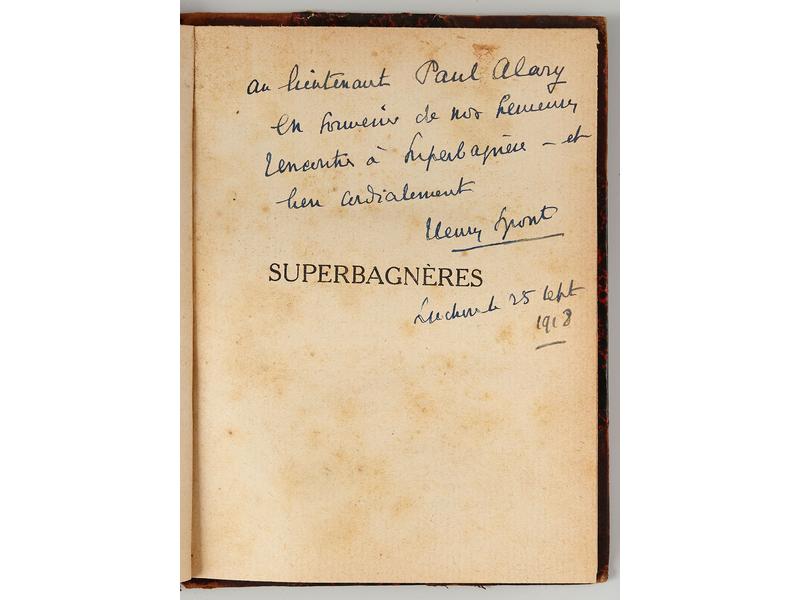 au lieutenant Paul Alary
en souvenir de nos
rencontres à Superbagnère - et
bien cordialement
Henry Spont
SUPERBAGNÈRES
Luchon le 25 sept
1918